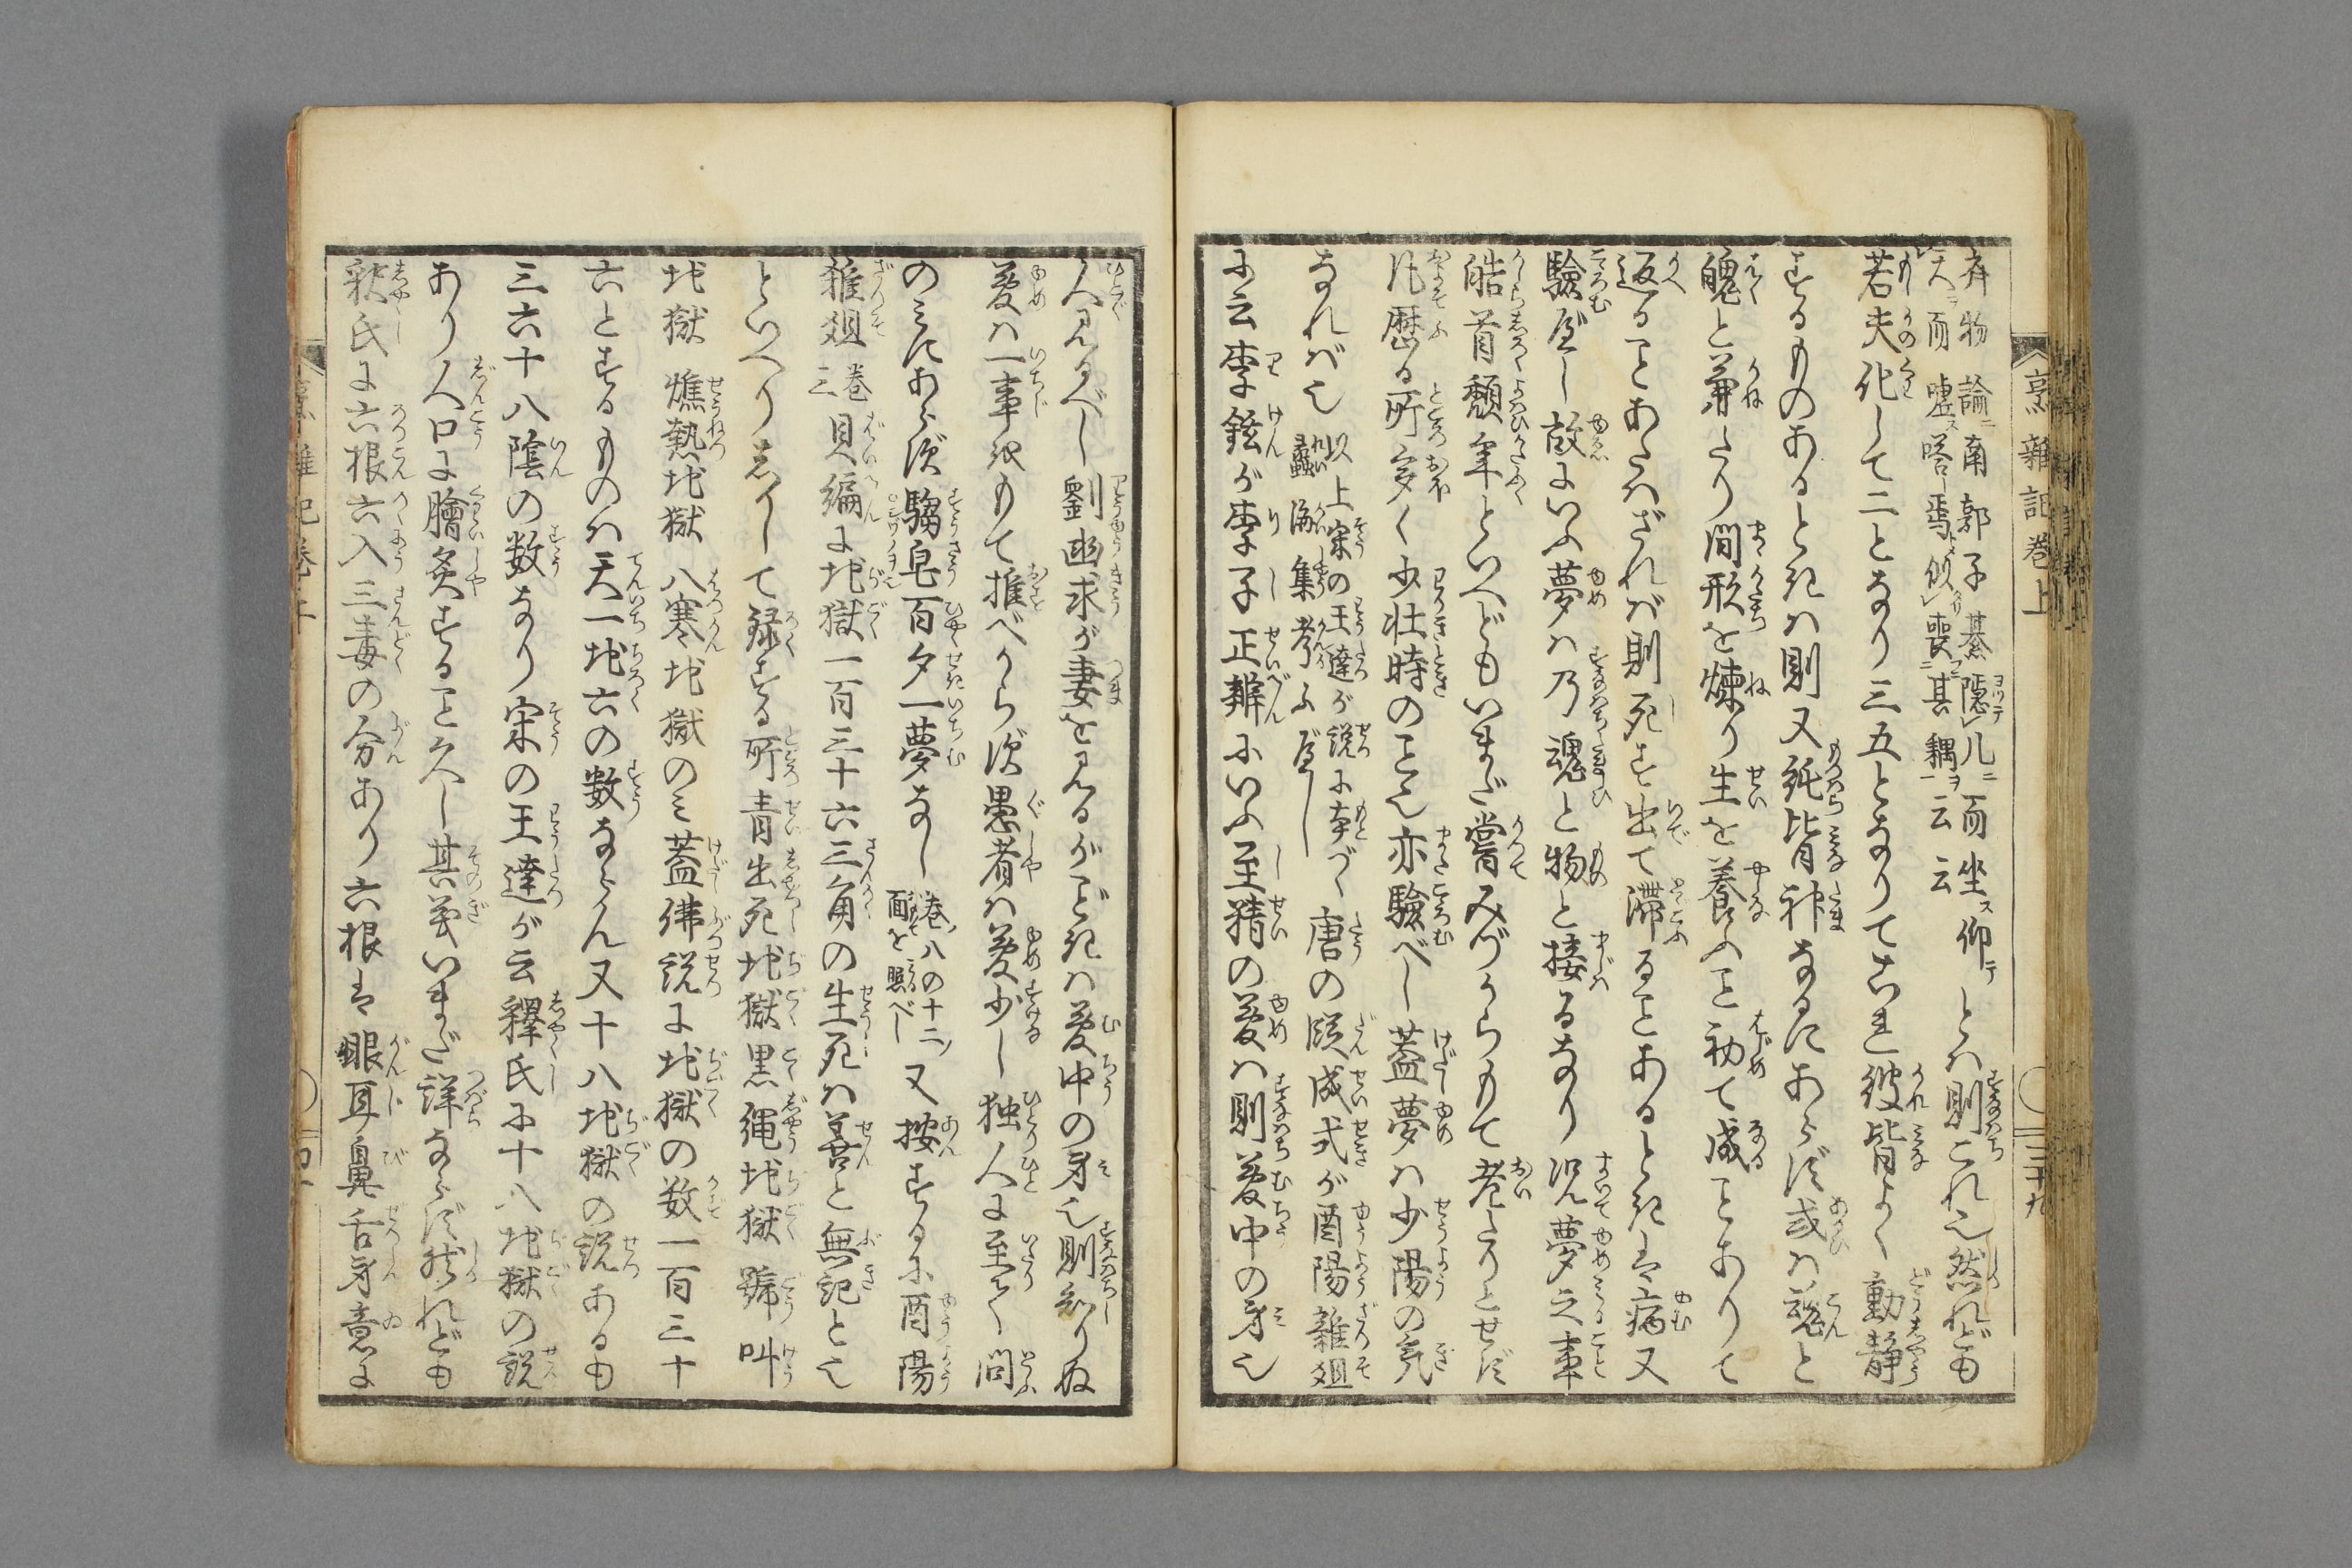 斉物論ニ南郭子綦隠テ几ニ而坐ス仰テ
天ヲ而嘘ス嗒焉トメ似喪ニ其耦ヲ云云
とは則これ也然れども
若夫化して二となり三五となりてこれ彼皆よく動静
するものあるときは則又純皆神なるにあらず或は魂と
魄と兼たり間形を煉り生を養ふこと初て成ことありて
返ることあたはざれば則死す出て滞ることあるときは病又
驗べし故にいふ夢は乃魂と物と接るなり况夢之事
皓首頽年といへどもいまだ嘗みづからもて老たりとせず
凡歴る所多く少壮時のこと也亦驗べし蓋夢は少陽の気
なれば也
以上宋の王逵が説に本づく
蠡海集考ふべし
唐の段成式が酉陽雑爼
に云李鉉が李子正辨にいふ至精の夢は則夢中の身也
人見るべし劉幽求が妻を見るがごときは夢中の身也則知りぬ
夢は一事をもて推べからず愚者は夢少し独人に至て問
のみにあらず騶皂百夕一夢なし
巻ノ八の十二ノ
面を照べし
又按するに酉陽
雑爼
巻三
貝編に地獄一百三十六三角の生死は善と無記と也
といへりしかして録する所青出死地獄黒縄地獄號叫
地獄燋熱地獄八寒地獄のミ蓋佛説に地獄の数一百三十
六とするものは天一地六の数ならん又十八地獄の説あるも
三六十八陰の数なり宋の王逵が云釋氏に十八地獄の説
あり人口に膾炙すること久し其義いまだ詳ならず然れども
釈氏に六根六入三毒の分あり六根は眼耳鼻舌身意に
烹雜記巻上
三十九